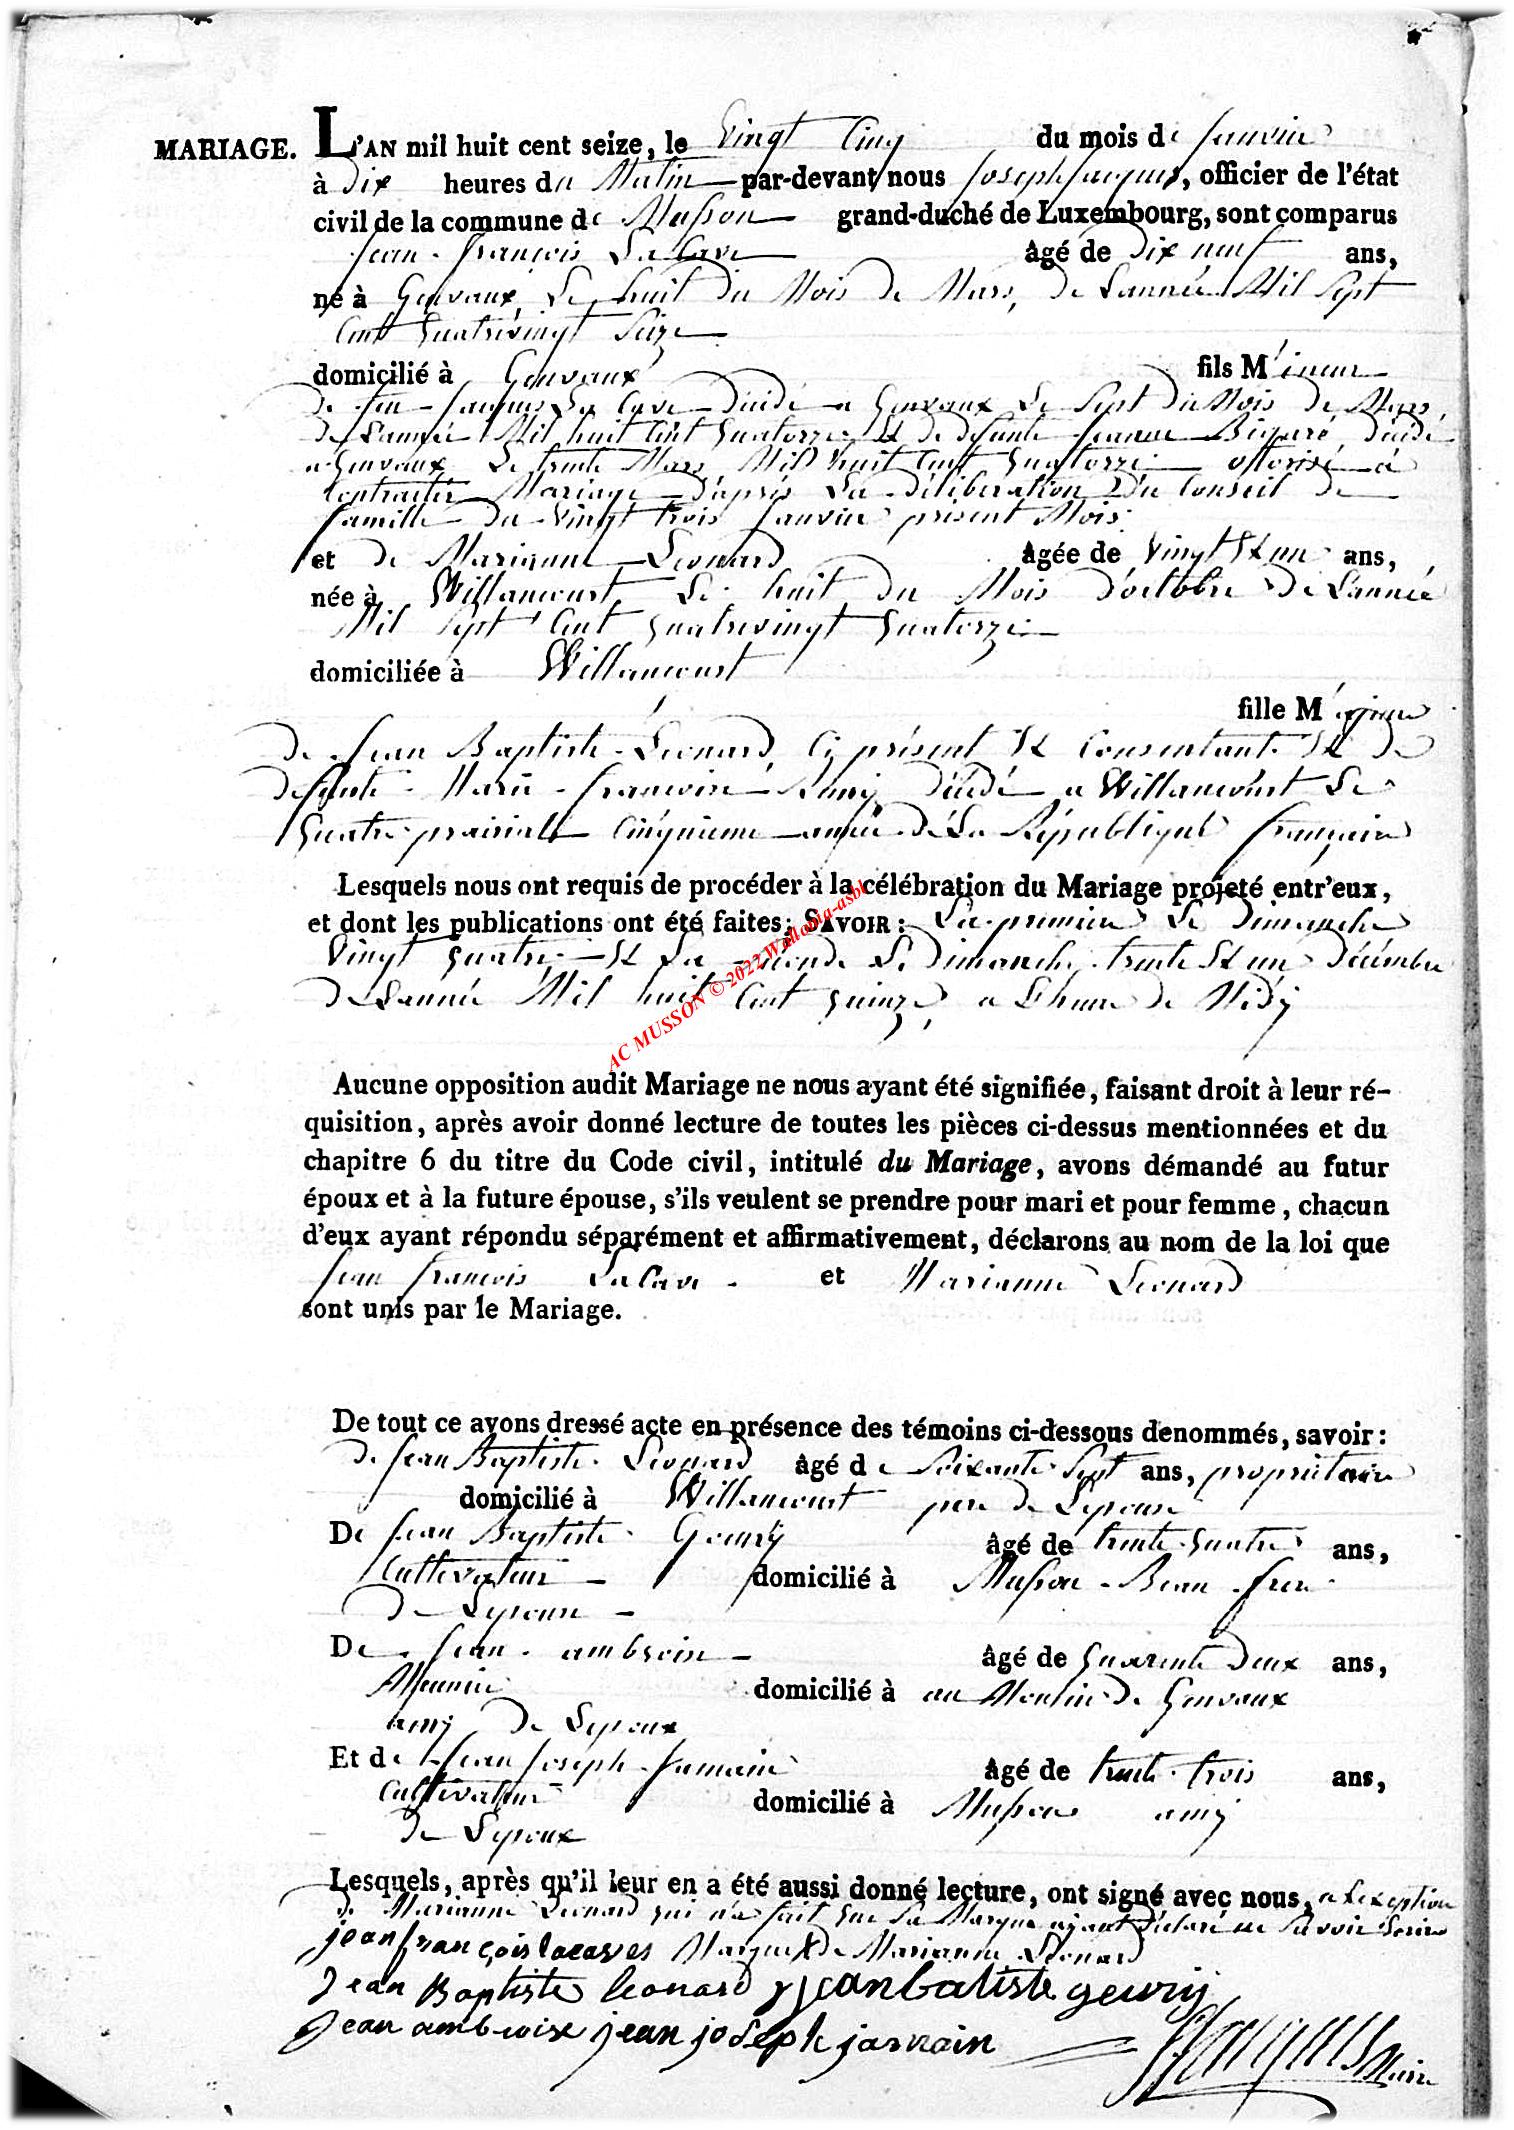 MARIAGE. L'AN mil huit cent seize, le Vingt Cinq du mois de Janvier
à Dix heures du Matin par-devant nous Joseph Jacques, officier de l'état
civil de la commune de Musson grand-duché de Luxembourg, sont comparus
Jean François La Cave âgé de Dix neuf ans,
né à Gervaux Le huit Du Mois De Mars, De L'année Mil Sept
Cent Quatrevingt Seize
domicilié à Gervaux fils Mineur
De feu Jacques La Cave Décédé a Gervaux Le Sept Du Mois De Mars
De L'année Mil huit Cent Quatorze Et De Défunte Jeanne Décédé
a Gervaux Le trente Mars Mil huit Cent Quatorze ottorisé à
Contracter Mariage D'après La Déliberation Du Conseil De
famille Du Vingt trois Janvier présent Mois
et De Marianne Leonard âgée de Vingt Et un ans,
née à Willancourt Le huit Du Mois D'octobre De L'année
Mil Sept Cent Quatrevingt Quatorze
domiciliée à Willancourt
fille Majeure
De Jean Baptiste Leonard Ci présent Et Consentant Et De
Défunte Marie Françoise Remy Décédé a Willancourt Le
Quatre prairial Cinquieme année De La République française
Lesquels nous ont requis de procéder à la célébration du Mariage projeté entr'eux,
et dont les publications ont été faites; SAVOIR: La premiere Le Dimanche
Vingt Quatre Et La Seconde Le Dimanche trente Et un Décembre
De L'année Mil huit Cent Quinze, a L'heure De Midy
AC MUSSON © 2022 Wallonia-asbl
Aucune opposition audit Mariage ne nous ayant été signifiée, faisant droit à leur ré-
quisition, après avoir donné lecture de toutes les pièces ci-dessus mentionnées et du
chapitre 6 du titre du Code civil, intitulé du Mariage, avons démandé au futur
époux et à la future épouse, s'ils veulent se prendre pour mari et pour femme, chacun
d'eux ayant répondu séparément et affirmativement, déclarons au nom de la loi que
Jean François La Cave et Marianne Leonard
sont unis par le Mariage.
De tout ce avons dressé acte en présence des témoins ci-dessous denommés, savoir:
De Jean Baptiste Leonard âgé de Soixante Sept ans, propriétaire
domicilié à Willancourt pere De Lepouse
De Jean Baptiste Geury âgé de trente Quatre ans,
Cultivateur domicilié à Musson Beau frere
De Lepouse
De Jean ambroise âgé de Quarente Deux ans,
Meunier domicilié à au Moulin De Gervaux
amy De Lepoux
Et de Jean Joseph Jamain âgé de trente trois ans,
Cultivateur domicilié à Musson amy
De Lepoux
Lesquels, après qu'il leur en a été aussi donné lecture, ont signé avec nous, a Lexception
De Marianne Leonard qui n'a fait que Sa Marque ayant Déclaré ne Savoir Ecrire
jean françois lacaves Marque X De Marianne Leonard
Jean Baptiste leonard jeanbatiste geury
Jean ambroise jean joseph jamain Jacques Maire